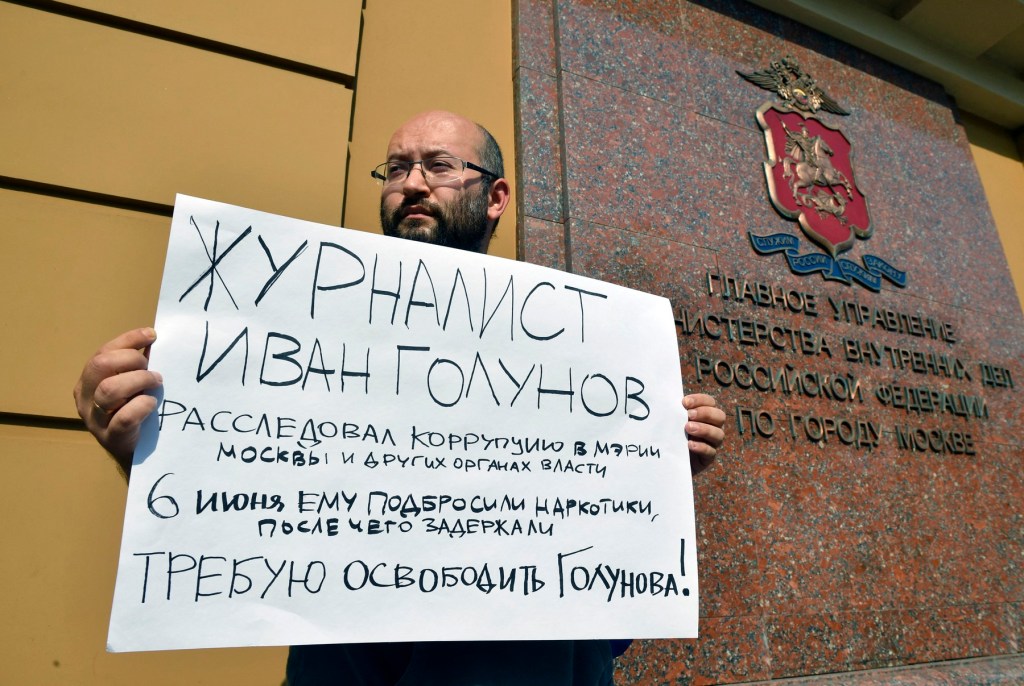 ЖУРНАЛИСТ
ИВАН ГОЛУНОВ
РАССЛЕДОВАЛ КОРРУПЦИЮ В МЭРИИ
МОСКВЫ И ДРУГИХ ОРГАНАХ ВЛАСТИ
6 ИЮНЯ ЕМУ ПОДБРОСИЛИ НАРКОТИКИ,
ПОСЛЕ ЧЕГО ЗАДЕРЖАЛИ
ТРЕБУЮ ОСВОБОДИТЬ ГОЛУНОВА!
СЛУЖИМ
РОССИИ
СЛУЖИМ
ЗАКОНУ
ГЛАВНОЕ УПРАВЛЕНИЕ
НИСТЕРСТВА ВНУТРЕННИХ ДЕЛ
РОССИЙСКОЙ ФЕДЕРАЦИИ
ПО ГОРОДУ МОСКВЕ